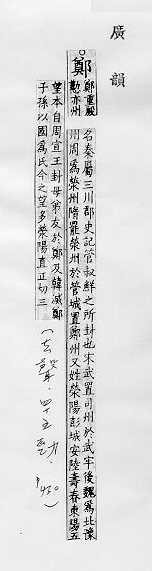 廣韻
鄭
鄭重殷
懃亦州
名秦屬三川郡史記管叔鮮之所封也宋武置司州於武牢後魏為北豫
州周為滎州隋罷滎州於管城置鄭州又姓滎陽彭城安陸壽春東陽五
望本自周宣王封母弟友於鄭及韓滅鄭
子孫以國為氏今之望多滎陽直正切三
(去聲.四十五勁